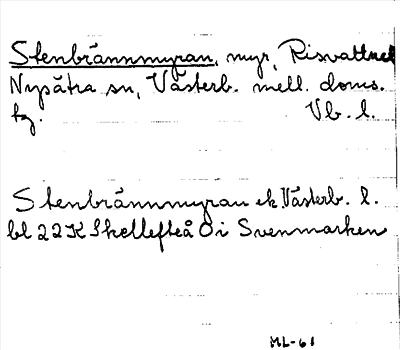 Stenbrännmyran, myr, Risvattnet
Nysätra sn, Västerb. mell. doms.
tg. Vb. l.
Stenbrännmyran ek. Västerb. l.
bl 22K Skellefteå 0i Svenmarken
ML-61